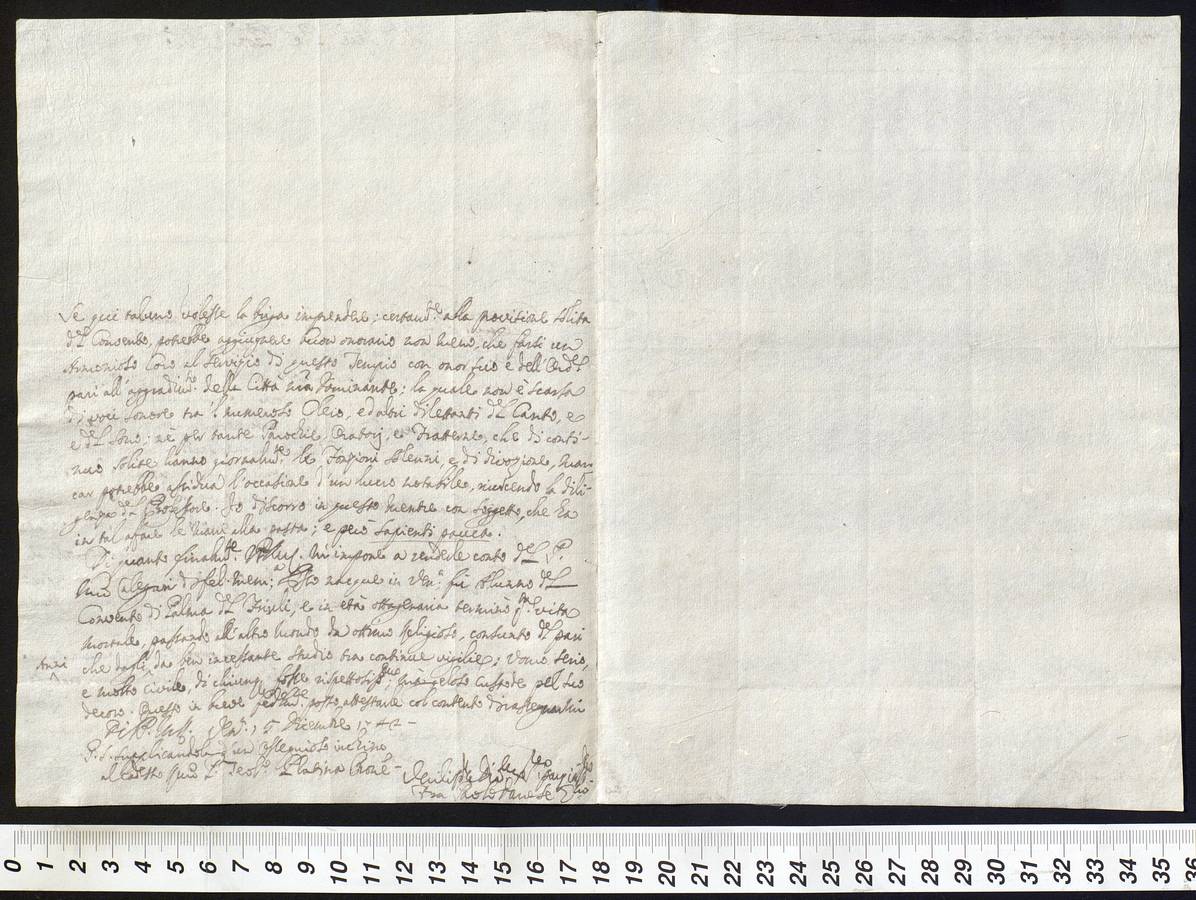 Se qui taluno volesse la briga imprendere; certamd.e alla provisione solita
del Convento, potrebbe aggiugnere buon onorario non meno, che farsi un
Armonioso Coro al servigio di questo Tempio con onor suo e dell'Ord.e
pari all'aggradim.to della Città n̄ra Dominante; la quale non è scarsa
di voci sonore tra 'l numeroso Clero, ed altri dilettanti del Canto, e
e del Sono; nè per tante Parochie, Oratorj, e Fratterne, che di conti-
nuo solite hanno giornalm.te le Fonzioni solenni, e di divozione, man
car potrebbe assidua l'occasione d'un lucro notabile, riuscendo la dili-
genza del Professore. Io discorro in questo mentre con soggetto, che ha
in tal affare le mani alla pasta; e però sapienti pauca.
Di quanto finalm.te m'impone a renderle conto del P.
Mr̄o Calegari di fel. mem.a nacque in Ven.a fù Alunno del
Convento di Palma del Friuli, e in età ottagenaria terminò vita
mortale, passando all'altro mondo da ottimo Religioso, consunto del pari
che dagli da ben incessante studio tra continue vigilie; Uomo serio,
Anni
e molto civile, di chiunque fosse rispettosiss.o; mà geloso custode pel suo
decoro. Questo in breve posso attestarle col contento di rassegnarmi
Di V. P. M. Ill. Ven.a 15 Diciembre 1742 -
P. S. supplicandola d'un ossequioso inchino
al Padre Teol.
Fra Paolo